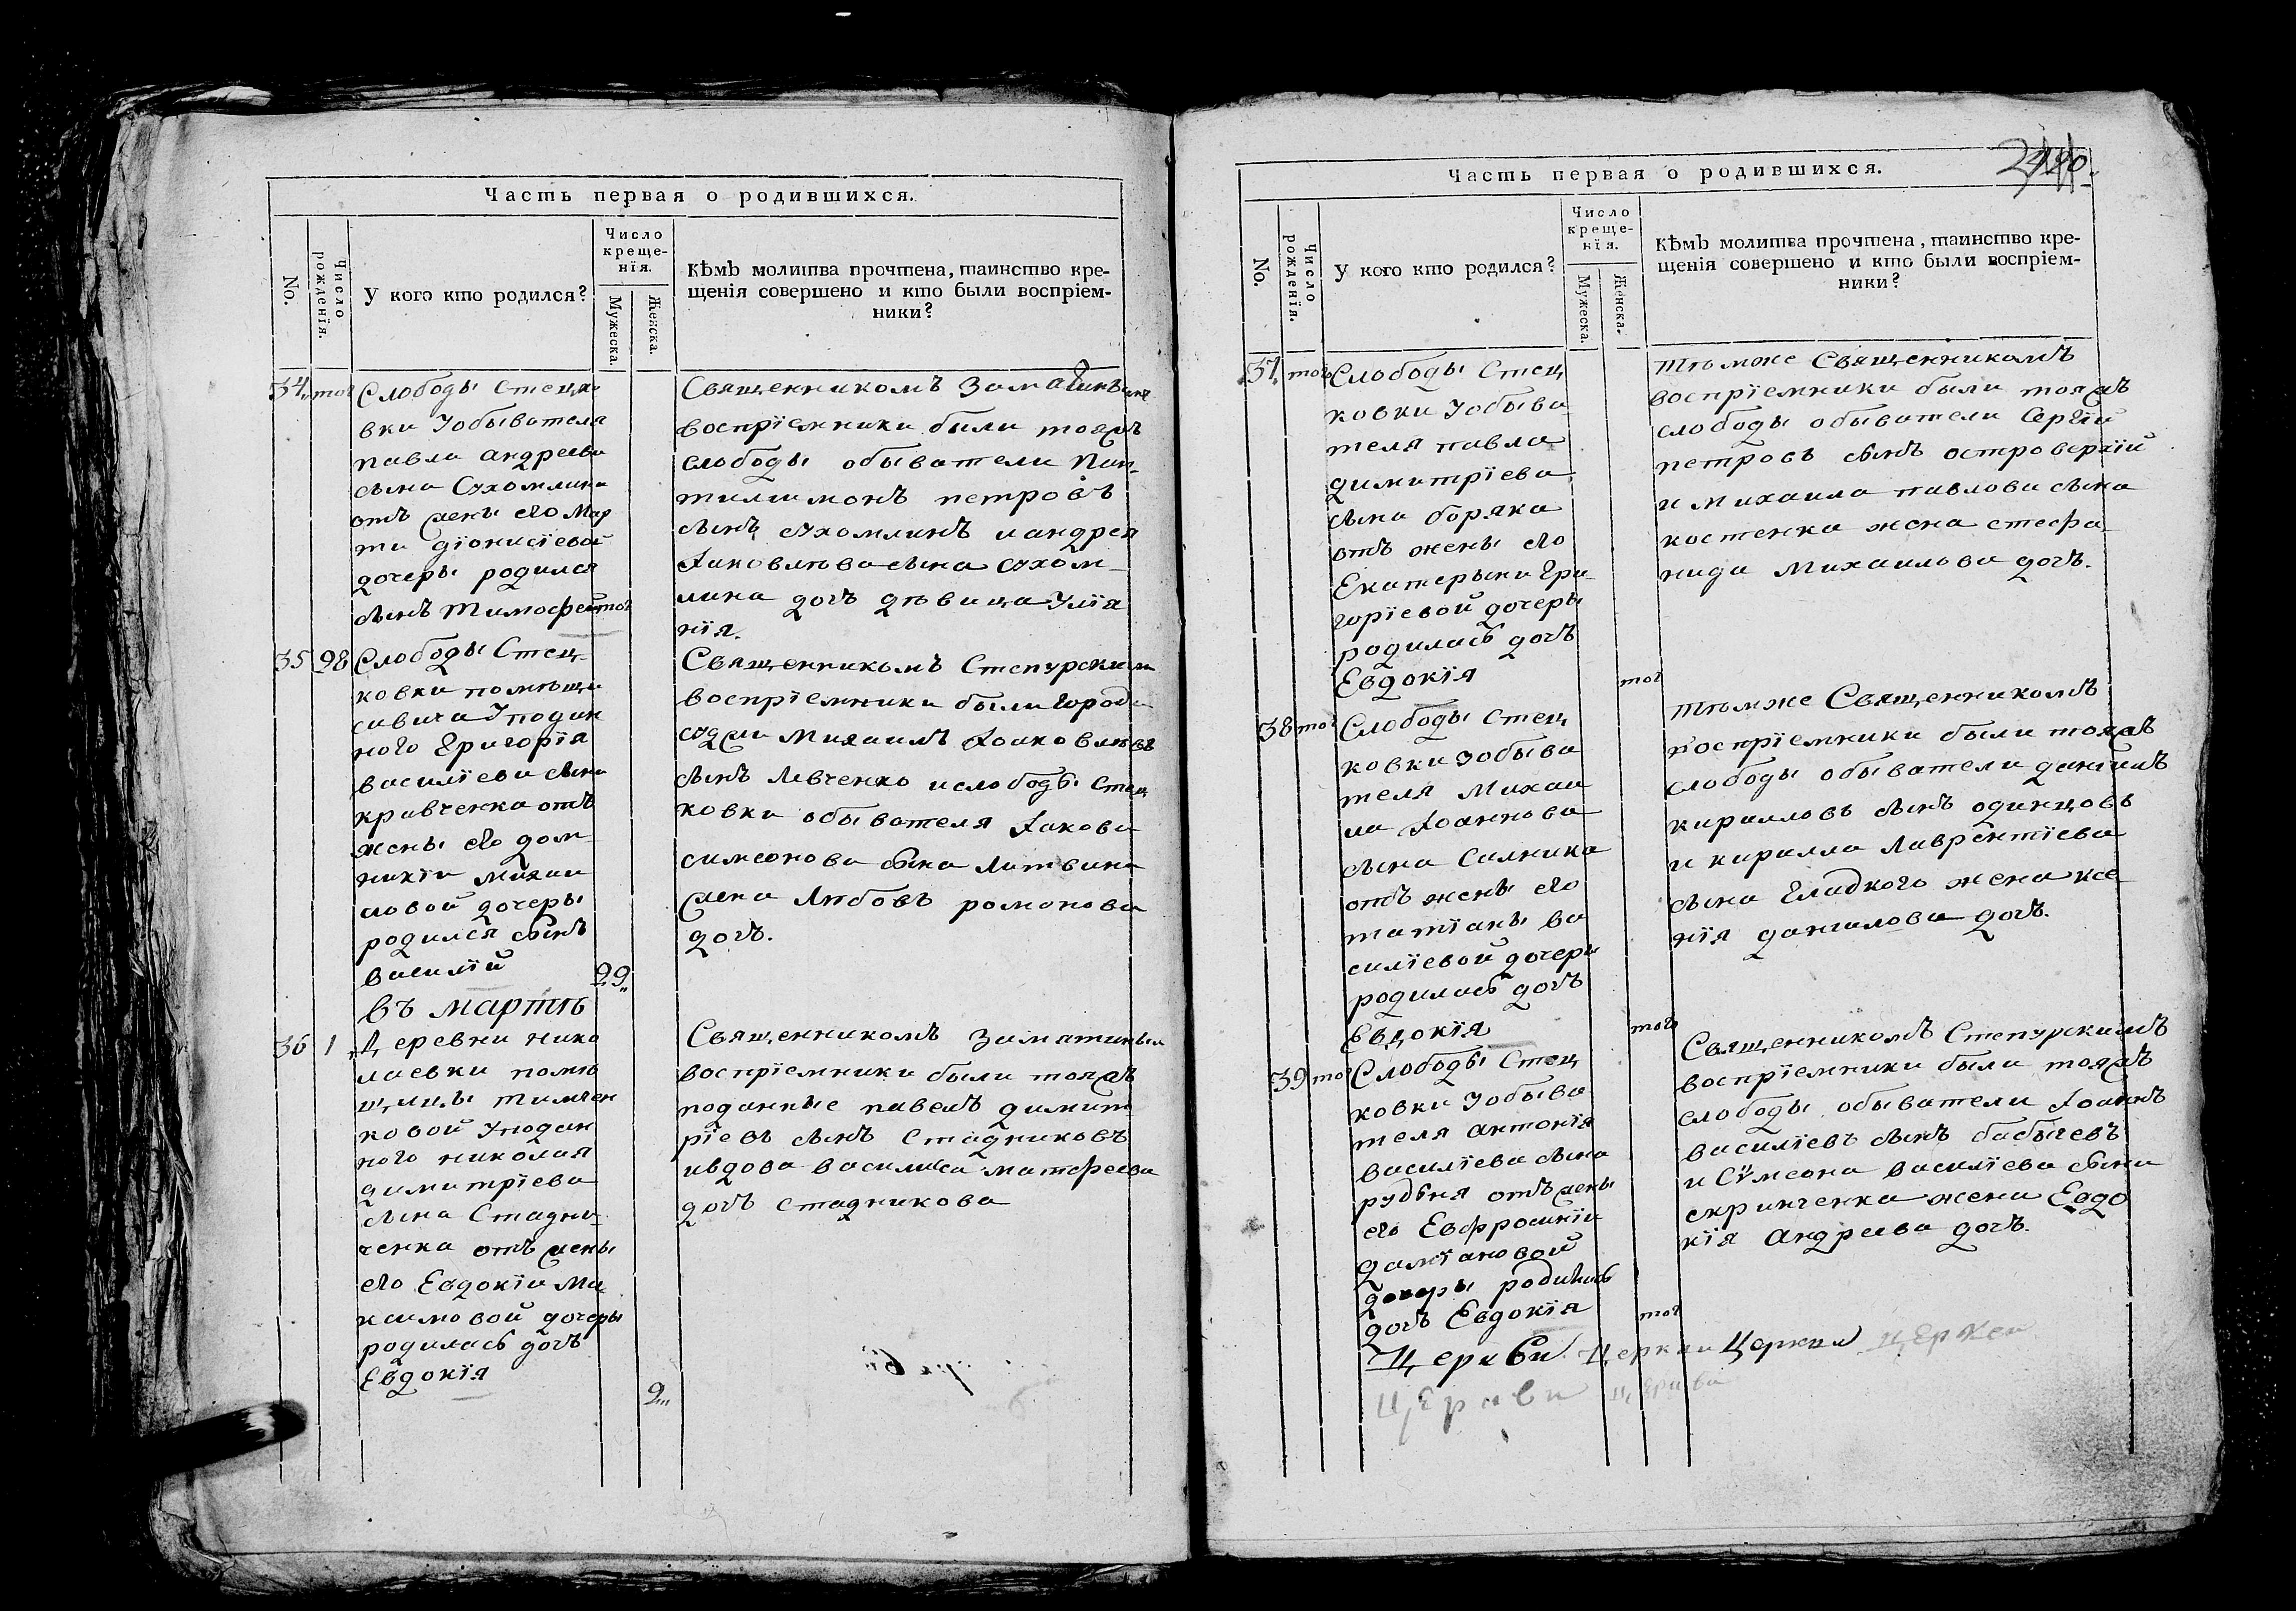 Часть первая о родившихся.
No.
Число рожденїя.
У кого кто родился?
Число
креще-
нїя.
Мужеска.
Женска.
Кѣмъ молитва прочтена, таинство кре-
щенія совершено и кто были воспріем-
ники?
34. тог
Слободы Стецко
вки Уобывателя
павла андреева
сына Сухомлина
отъ жены его Мар
ти дїонисїевой
дочеры родился
сынъ Тимофей тог
Священникомъ
воспрїемники были тояжъ
слободы обыватели Пан-
тилимонъ петровъ
сынъ сухомлинъ иандрея
Їаковлѣва сына сухом-
лина дочь дѣвица Улїя
нїя.
35 28
Слободы Стец-
ковки помѣщи
савича Уподан
ного Григорїя
василїева сына
кравченка отъ
жены его дом-
никїи михаи
ловой дочеры
родился сынъ
василїй 29
Священникомъ Степурскимъ
воспрїемники были города
суджи Михаилъ Їаковлѣвъ
сынъ Левченко ислободы Стец
ковки обывателя Їакова
симеонова сына Литвина
жена Любовъ романова
дочъ.
въ мартѣ
36 1
Деревни нико
лаевки помѣ
щицы тимчен
ковой Уподан
ного николая
димитрїева
сына Стадни-
ченка отъ жены
его Евдокїи Ма
ксимовой дочеры
родиласъ дочъ
Евдокїя
2
Священникомъ
воспрїемники были тояжъ
поданные павелъ димит
рїевъ сынъ Стадниковъ
ивдова василиса матфеева
дочъ стадникова
Часть первая о родившихся.
No.
Число рожденїя.
У кого кто родился?
Число
креще-
нїя.
Мужеска.
Женска.
Кѣмъ молитва прочтена, таинство кре-
щенія совершено и кто были воспріем-
ники?
37. тог
Слободы Стец
ковки Уобыва
теля павла
димитрїева
сына боряка
отъ жены его
Екатерыни Гри-
горїевой дочеры
родиласъ дочъ
Евдокїя
тог
тѣмже Священникомъ
воспрїемники были тояжъ
слободы обыватели Сергїй
петровъ сынъ островерхїй
и михаила павлова сына
костенка жена стефа
нида Михаилова дочъ.
38 тог
Слободы Стец
ковки Уобыва
теля Михаи
ла Їоаннова
сына Салника
отъ жены его
татїаны ва
силїевой дочеры
родиласъ дочъ
Евдокїя
тог
тѣмже Священникомъ
воспрїемники были тояжъ
слободы обыватели данїилъ
кирилловъ сынъ одинцовъ
и кирилла Лаврентїева
сына Гладкого жена ксе
нїя данилова дочъ.
39 тог
Слободы Стец
ковки Уобыва
теля антонїя
василїева сына
рудбня отъ жены
его Евфросинїи
дамїановой
дочеры родиласъ
дочъ Евдокїя
тог
Священникомъ Степурскимъ
воспрїемники были тояжъ
слободы обыватели Їоаннъ
василїевъ сынъ бабычевъ
и Сѵмеона василїева сына
скринченка жена Евдо
кїя Андреева дочъ.
Церкви Церкви Церкви Церкви
Церкви Церкви